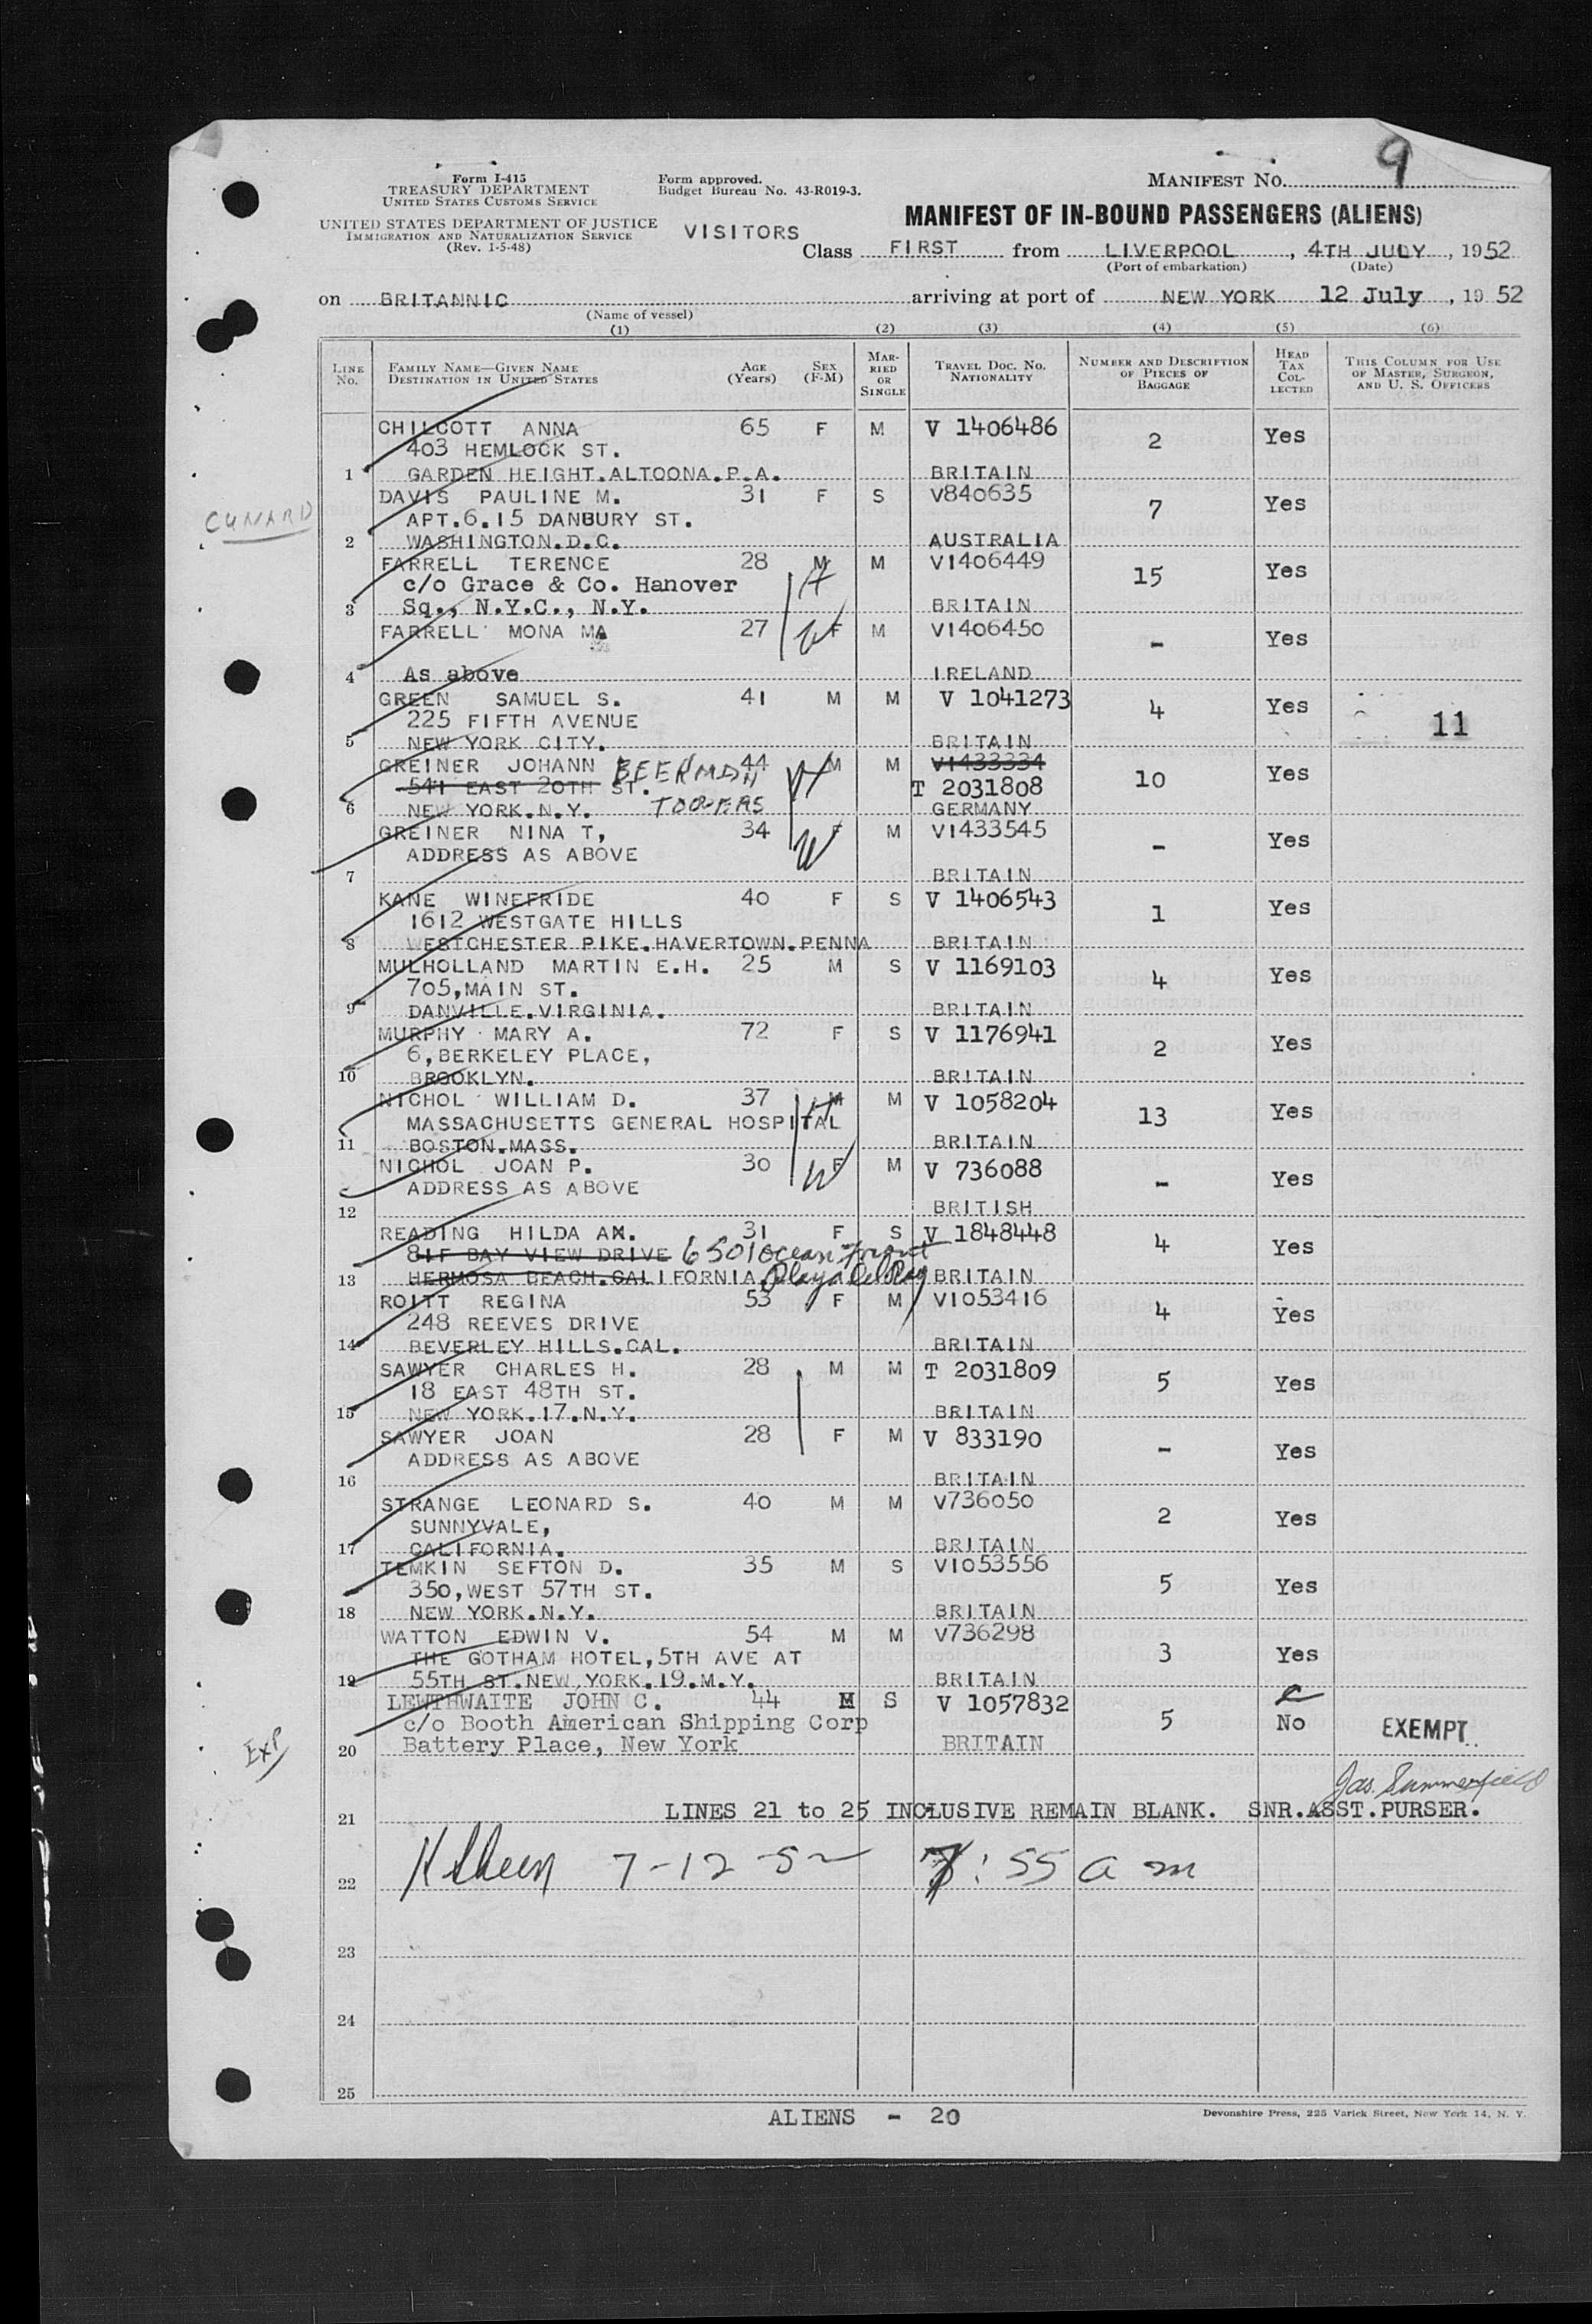 9
Form I-415
TREASURY DEPARTMENT
UNITED STATES CUSTOMS SERVICE
UNITED STATES DEPARTMENT OF JUSTICE
IMMIGRATION AND NATURALIZATION SERVICE
(Rev. 1-5-48)
Form approved.
Budget Bureau No. 43-R019-3.
VISITORS
MANIFEST NO.
MANIFEST OF IN-BOUND PASSENGERS (ALIENS)
Class FIRST from LIVERPOOL, 4TH JULY, 1952
(Port of embarkation) (Date)
on BRITANNIC arriving at port of NEW YORK 12 July, 19 52
(Name of vessel)
(1) (2) (3) (4) (5) (6)
LINE No. FAMILY NAME—GIVEN NAME DESTINATION IN UNITED STATES AGE (Years) SEX (F-M) MARRIED OR SINGLE TRAVEL DOC. NO. NATIONALITY NUMBER AND DESCRIPTION OF PIECES OF BAGGAGE HEAD TAX COLLECTED THIS COLUMN FOR USE OF MASTER, SURGEON, AND U. S. OFFICERS
CHILCOTT ANNA 65 F M V 1406486 2 Yes
403 HEMLOCK ST.
1 GARDEN HEIGHT.ALTOONA.P.A. BRITAIN
CUNARD
DAVIS PAULINE M. 31 F S V840635 7 Yes
APT.6.15 DANBURY ST.
2 WASHINGTON.D.C. AUSTRALIA
FARRELL TERENCE 28 M H M V1406449 15 Yes
c/o Grace & Co. Hanover
3 Sq., N.Y.C., N.Y. BRITAIN
FARRELL MONA MA 27 F W M V1406450 - Yes
4 As above IRELAND
GREEN SAMUEL S. 41 M M V 1041273 4 Yes 11
225 FIFTH AVENUE
5 NEW YORK CITY. BRITAIN
GREINER JOHANN 44 M H M V1433334 10 Yes
541 EAST 20TH ST. BEEKMAN T 2031808
6 NEW YORK.N.Y. TOOWERS GERMANY
GREINER NINA T, 34 F W M V1433545 - Yes
ADDRESS AS ABOVE
7 BRITAIN
KANE WINEFRIDE 40 F S V 1406543 1 Yes
1612 WESTGATE HILLS
8 WESTCHESTER PIKE.HAVERTOWN.PENNA BRITAIN
MULHOLLAND MARTIN E.H. 25 M S V 1169103 4 Yes
705,MAIN ST.
9 DANVILLE.VIRGINIA. BRITAIN
MURPHY MARY A. 72 F S V 1176941 2 Yes
6,BERKELEY PLACE,
10 BROOKLYN. BRITAIN
NICHOL WILLIAM D. 37 M H M V 1058204 13 Yes
MASSACHUSETTS GENERAL HOSPITAL
11 BOSTON.MASS. BRITAIN
NICHOL JOAN P. 30 F W M V 736088 - Yes
ADDRESS AS ABOVE
12 BRITISH
READING HILDA AM. 31 F S V 1848448 4 Yes
81F BAY VIEW DRIVE 6501 Ocean Front
13 HERMOSA BEACH.CALIFORNIA. Playa del Rey BRITAIN
ROITT REGINA 53 F M V1053416 4 Yes
248 REEVES DRIVE
14 BEVERLEY HILLS.CAL. BRITAIN
SAWYER CHARLES H. 28 M M T 2031809 5 Yes
18 EAST 48TH ST.
15 NEW YORK.17.N.Y. BRITAIN
SAWYER JOAN 28 F M V 833190 - Yes
ADDRESS AS ABOVE
16 BRITAIN
STRANGE LEONARD S. 40 M M V736050 2 Yes
SUNNYVALE,
17 CALIFORNIA. BRITAIN
TEMKIN SEFTON D. 35 M S V1053556 5 Yes
350,WEST 57TH ST.
18 NEW YORK.N.Y. BRITAIN
WATTON EDWIN V. 54 M M V736298 3 Yes
THE GOTHAM HOTEL,5TH AVE AT
19 55TH ST.NEW YORK.19.M.Y. BRITAIN
LEWTHWAITE JOHN C. 44 M S V 1057832 5 No EXEMPT
c/o Booth American Shipping Corp
20 Battery Place, New York BRITAIN
EXP
Jas. Summerfield
21 LINES 21 to 25 INCLUSIVE REMAIN BLANK. SNR.ASST.PURSER.
22 7-12-52 :55 a m
23
24
25
ALIENS - 20
Devonshire Press, 225 Varick Street, New York 14, N. Y.